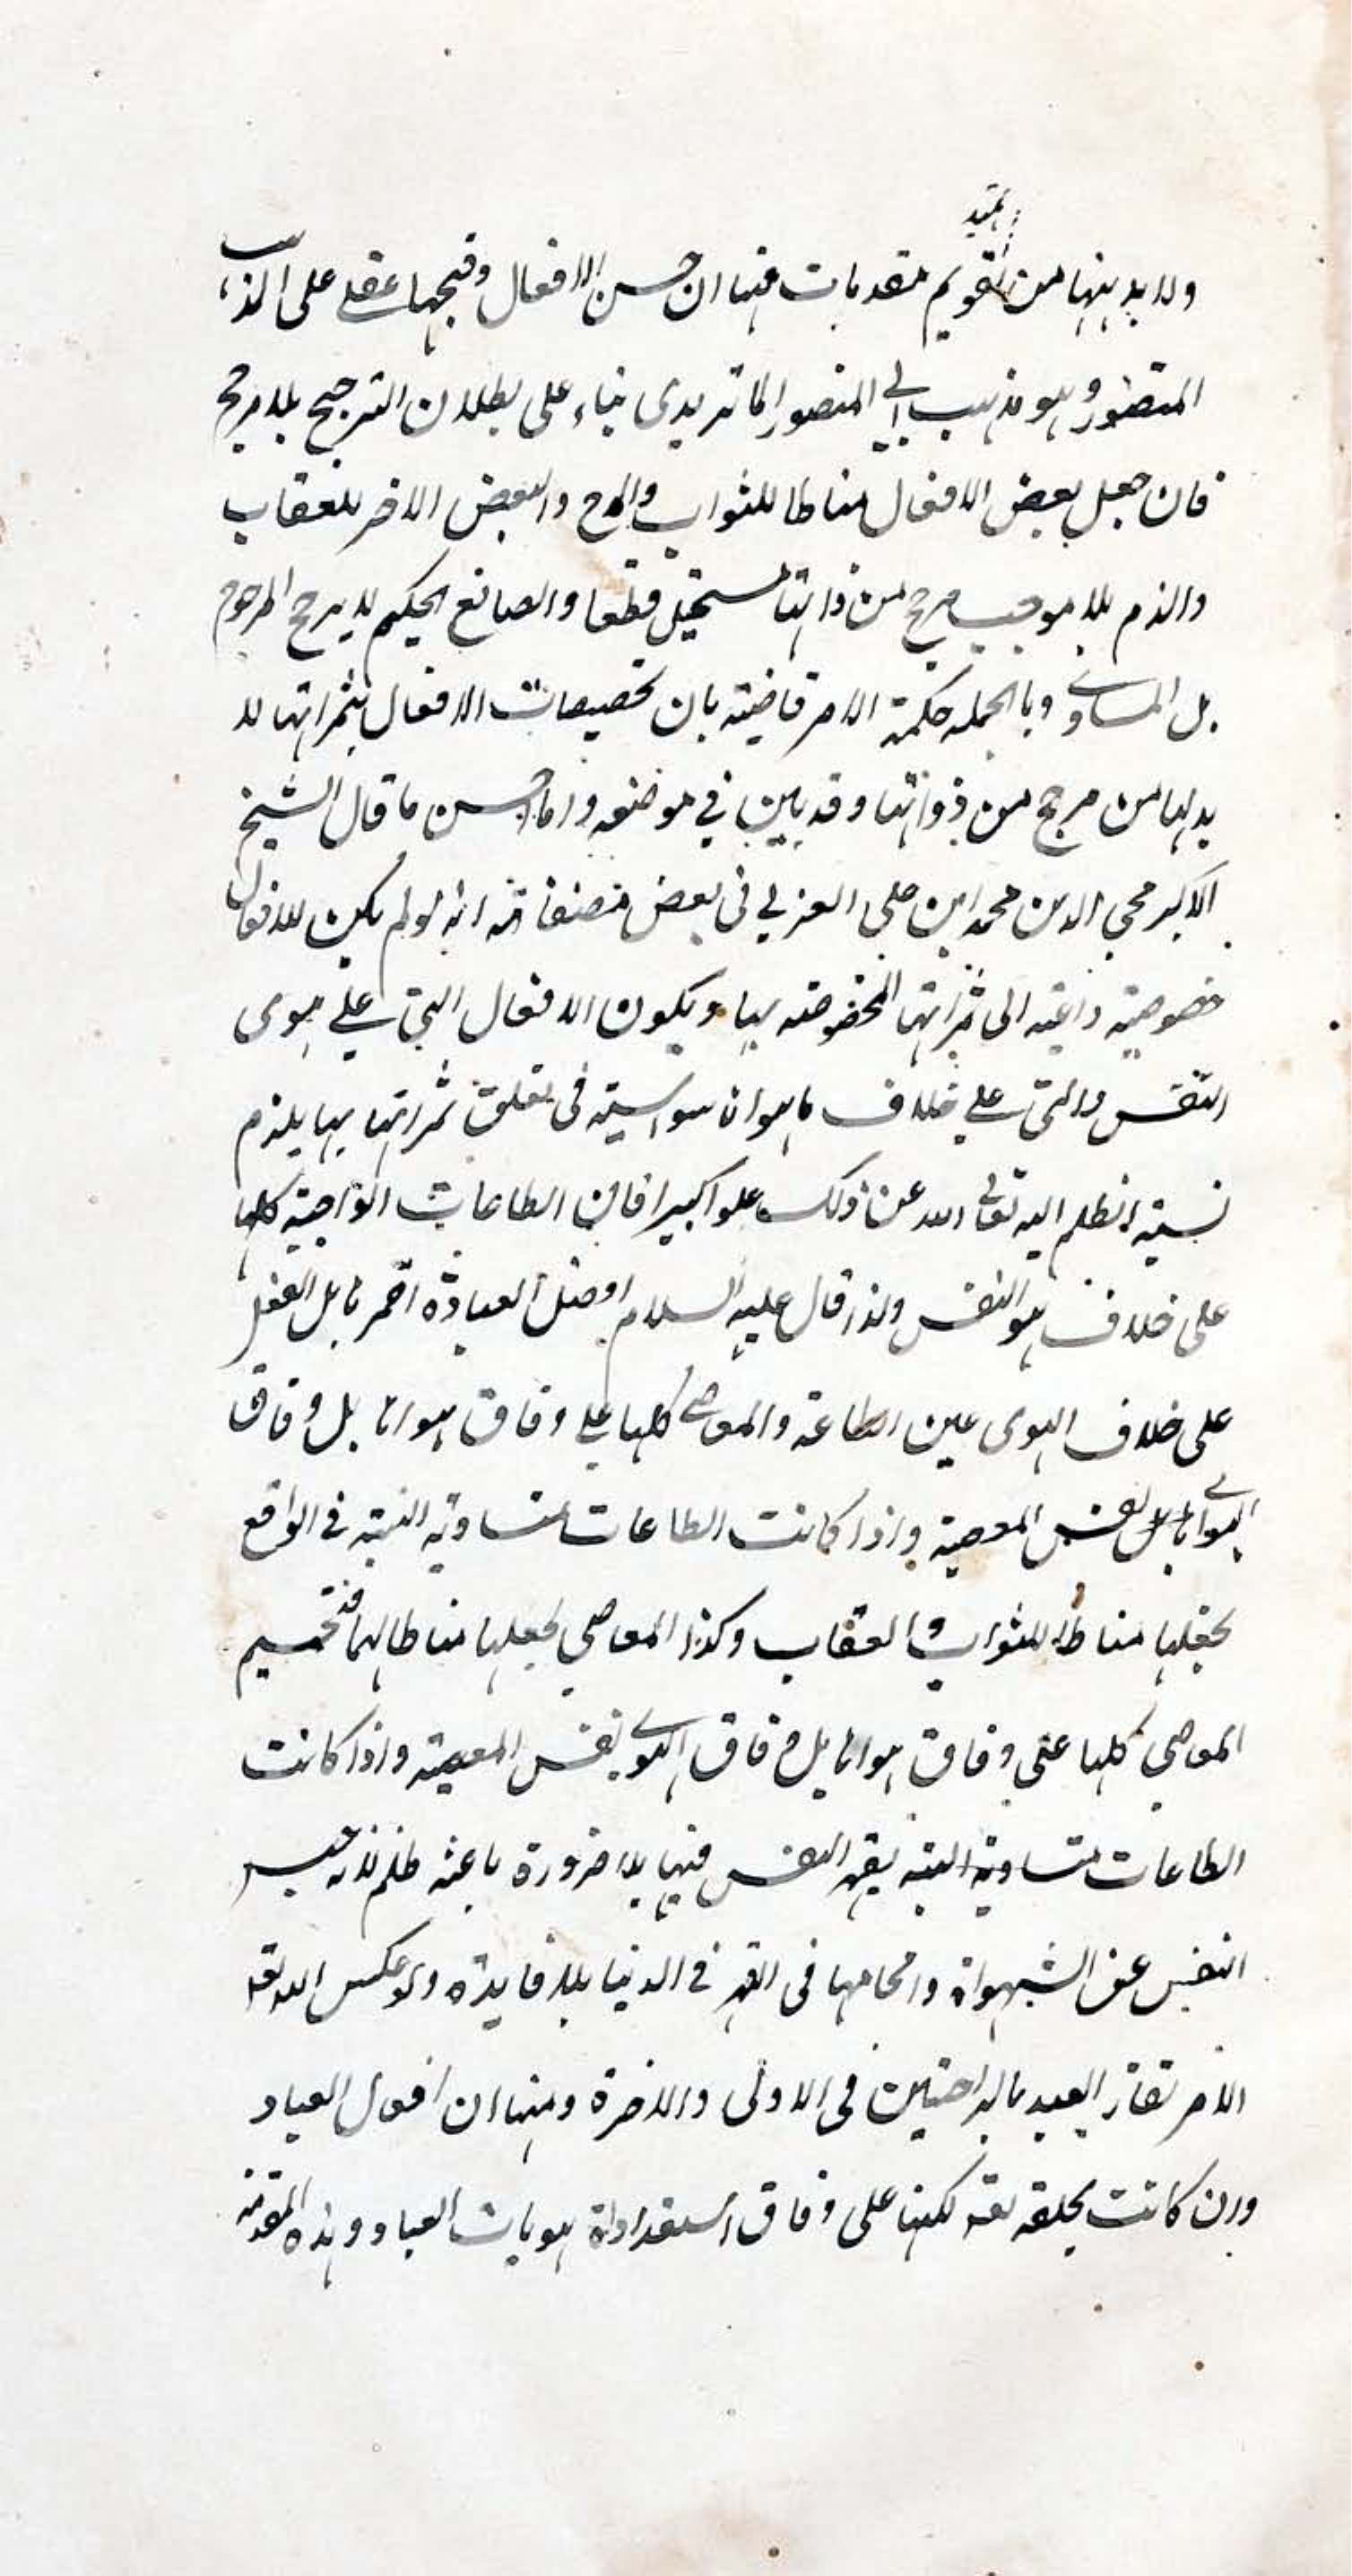 تمهيد
ولا بد ههنا من تقويم مقدمات منها ان حسن الافعال وقبحها عقلى على المذهب
المنصور وهو مذهب ابى المنصور الماتريدى بناء على بطلان الترجيح بلا مرجح
فان جعل بعض الافعال مناطا للثواب والمدح والبعض الاخر للعقاب
والذم بلا موجب مرجح من ذاتها مستحيل قطعا والصانع الحكيم لا يرجح المرجوح
بل المساوى وبالجملة حكمة الامر قاضية بان تخصيصات الافعال بثمراتها لا
بد لها من مرجح من ذواتها وقد بين في موضعه وما احسن ما قال الشيخ
الاكبر محي الدين محمد ابن على العربي فى بعض مصنفاته انه لو لم يكن للافعال
خصوصية داعية الى ثمراتها المخصوصة بها ويكون الافعال التى على هوى
النفس والتى على خلاف هواها سواسية فى تعلق ثمراتها بها يلزم
نسبة الظلم اليه تعالى الله عن ذلك علوا كبيرا فان الطاعات الواجبة كلها
على خلاف هو النفس ولذا قال عليه السلام افضل العبادة احمزها بل الفعل
على خلاف الهوى عين الطاعة والمعاصى كلها على وفاق هواها بل وفاق
الهوى نفس المعصية واذا كانت الطاعات متساوية النسبة في الواقع
بجعلها مناطا للثواب والعقاب وكذا المعاصي بجعلها مناطا لهما
المعاصي كلها على وفاق هواها بل وفاق الهوى نفس المعصية واذا كانت
الطاعات متساوية النسبة بقهر النفس فيها بلا ضرورة باعثة ظلم لانه حبس
النفس عن الشهواة واقحامها فى القهر في الدنيا بلا فايدة ولو عكس
الامر لفاز العبد بالراحتين فى الاولى والاخرة ومنها ان افعال العباد
وان كانت بخلقه تعه لكنها على وفاق استعداداة هويات العباد وهذه المقدمة